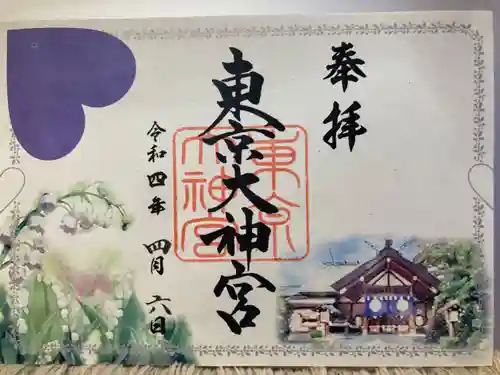 奉拝
東京大神宮
東京大神宮
令和四年 四月 六日